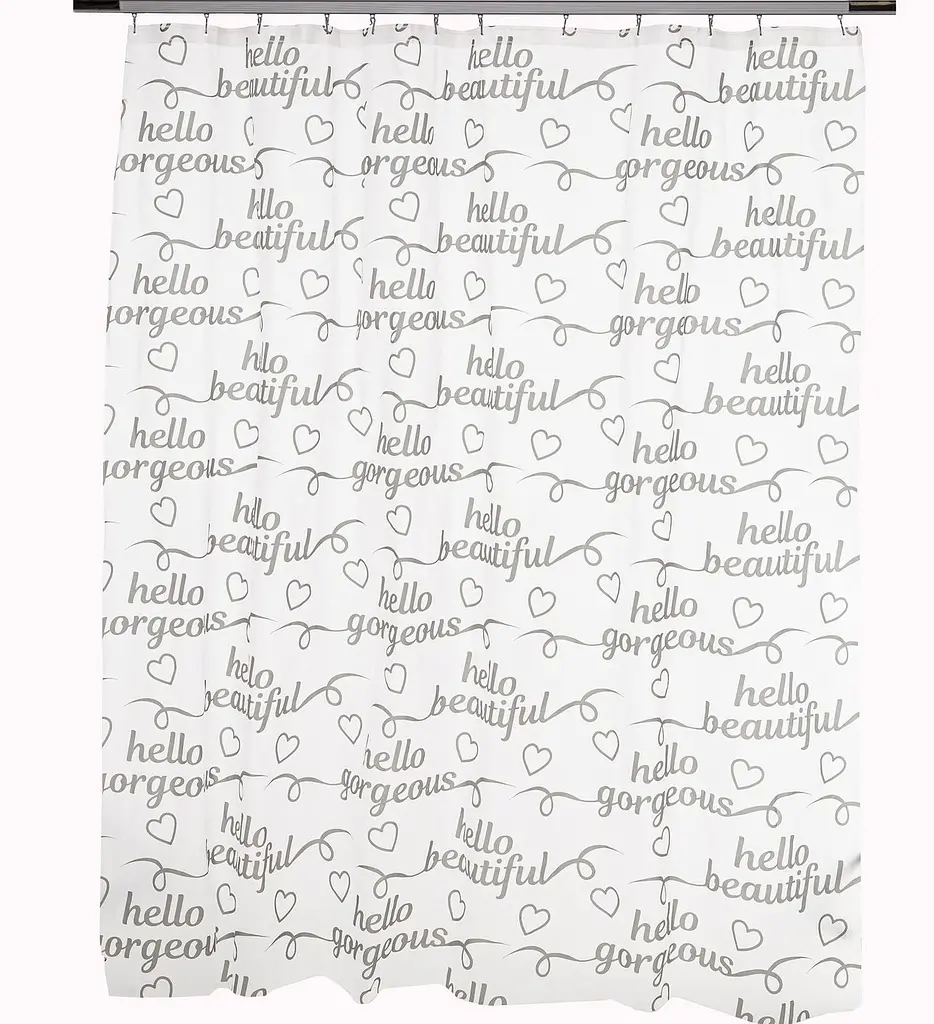 hello hello hello
beautiful beautiful beautiful
hello hello hello
orgeous gorgeous gorgeous
hello hello hello
beautiful beautiful beautiful
hello hello hello
gorgeous gorgeous gorgeous
hello hello hello
beautiful beautiful beautiful
hello hello hello
gorgeous gorgeous gorgeous
hello hello hello
beautiful beautiful beautiful
hello hello hello
gorgeous gorgeous gorgeous
hello hello hello
beautiful beautiful beautiful
hello hello hello
gorgeous gorgeous gorgeous
hello hello hello
beautiful beautiful beautiful
hello hello hello
gorgeous gorgeous gorgeous
hello hello hello